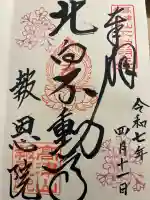 奉拝
令和七年
四月十一日
北向不動尊
報恩院